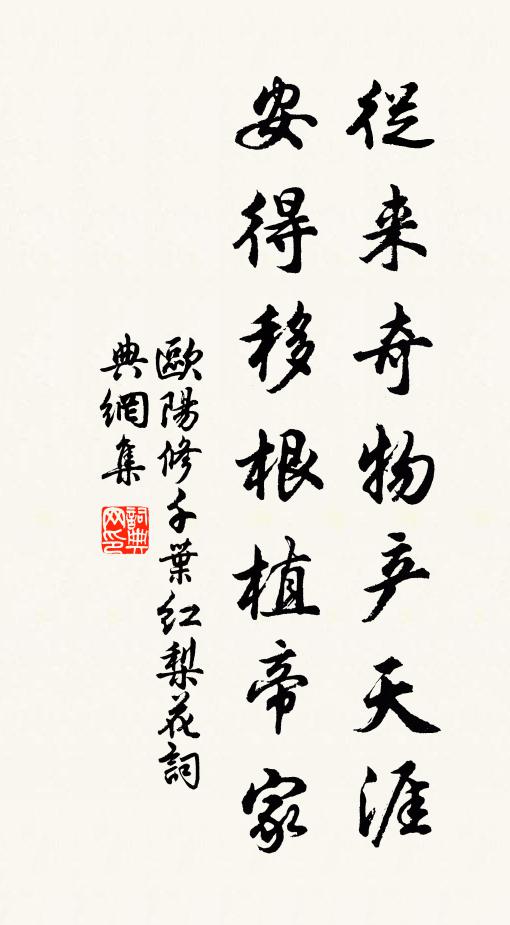 從来奇物产天涯
安得移根植帝家
歐陽修千葉红梨花詞
典網集
詞典
网印